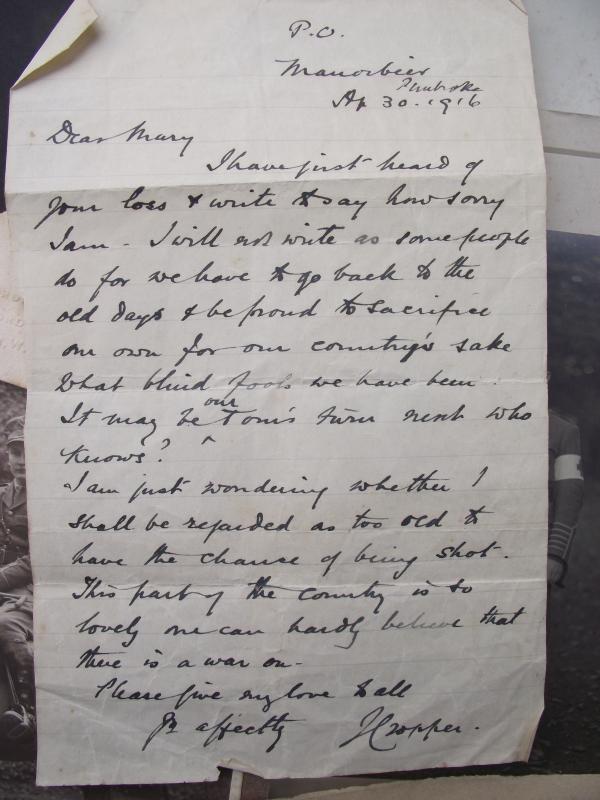 P.O.
Manorbier
Pembroke
Ap 30. 1916
Dear Mary
I have just heard of
your loss & write to say how sorry
I am - I will not write as some people
do for we have to go back to the
old days & be proud to sacrifice
our own for our country's sake
What blind fools we have been.
It may be our Tom's turn next who
knows?
I am just wondering whether I
shall be regarded as too old to
have the chance of being shot.
This part of the country is so
lovely one can hardly believe that
there is a war on -
Please give my love to all
Yr affectly J Cropper.